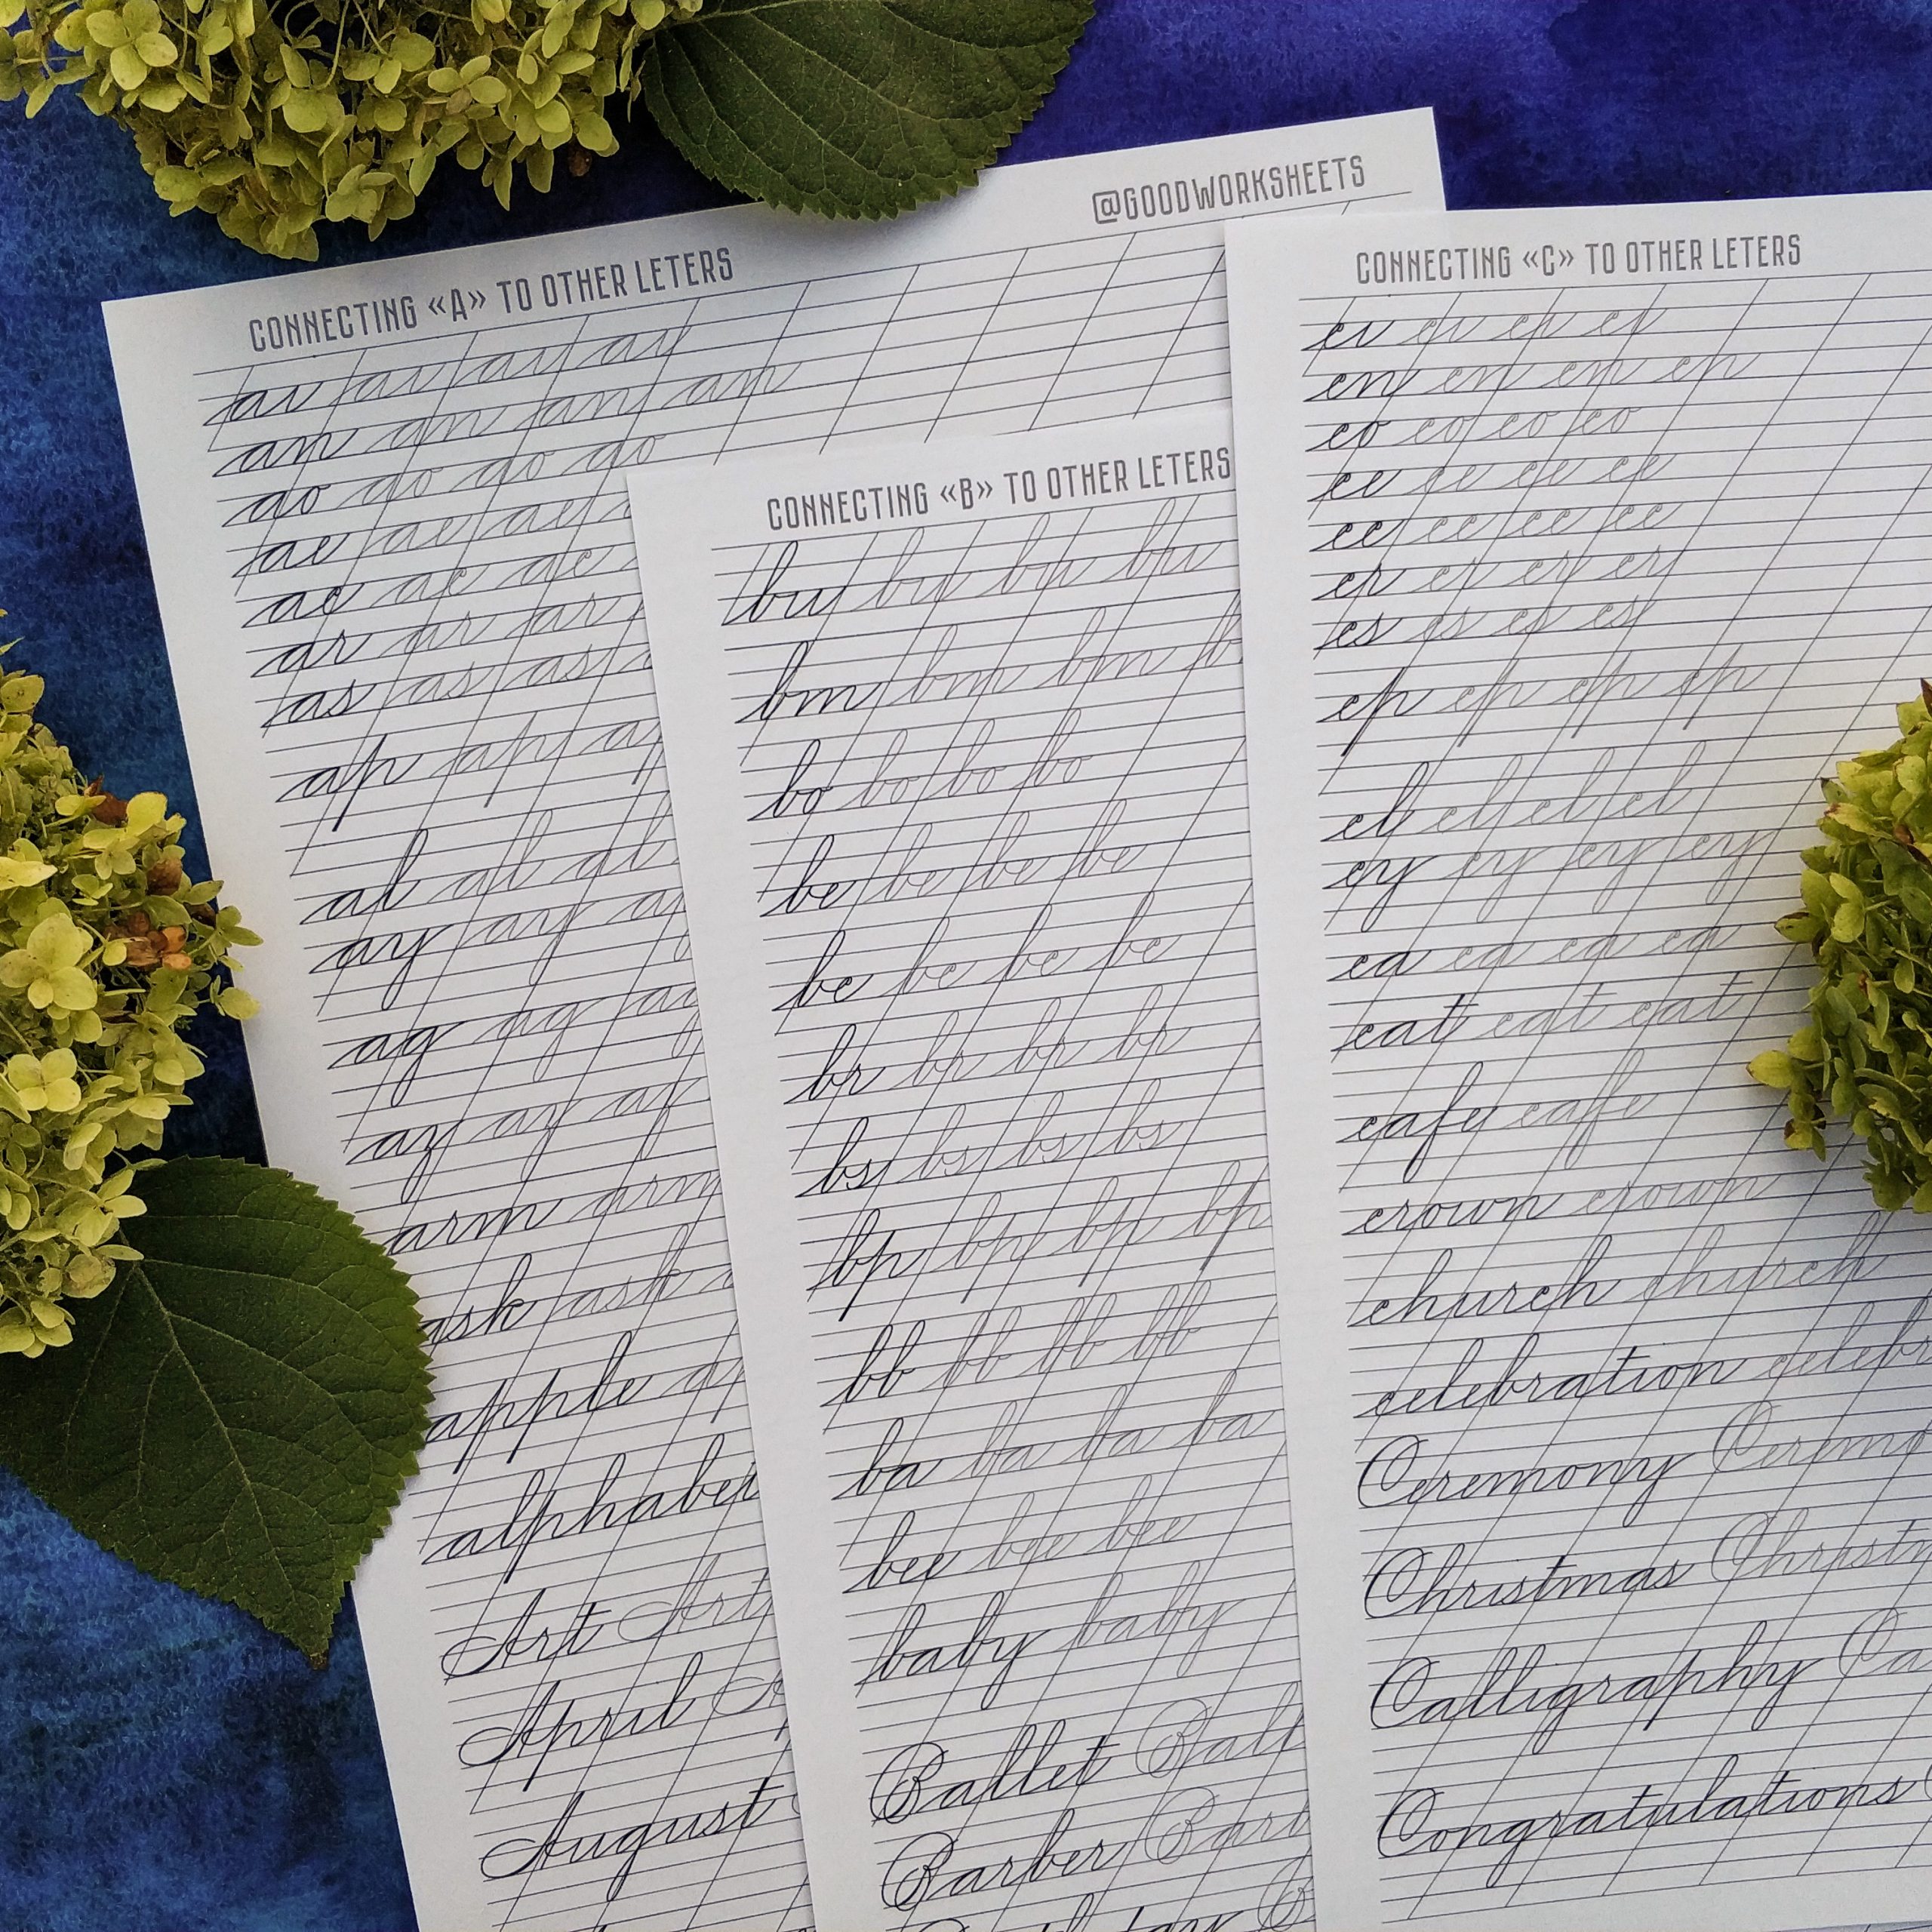 @GOODWORKSHEETS
CONNECTING «A» TO OTHER LETERS
an an an an
ao ao ao ao
ae ae ae
ac ac ac
ar ar ar
as as as
ap ap
al al al
ay ay
ag ag
az az az
arm arm
ask ask
apple
alphabet
Art Art
April
August
CONNECTING «B» TO OTHER LETERS
bu bu bu bu
bm bm bm
bo bo bo bo
be be be be
bc bc bc bc
br br br br
bs bs bs bs
bp bp bp bp
bb bb bb bb
ba ba ba ba
bee bee bee
baby baby
Ballet
Barber
CONNECTING «C» TO OTHER LETERS
cn cn cn cn
co co co co
ce ce ce ce
cc cc cc cc
cr cr cr cr
cs cs cs cs
cp cp cp cp
cl cl cl cl
cy cy cy cy
ca ca ca ca
cat cat cat
cafe cafe
crown crown
church church
celebration
Ceremony
Christmas
Calligraphy
Congratulations